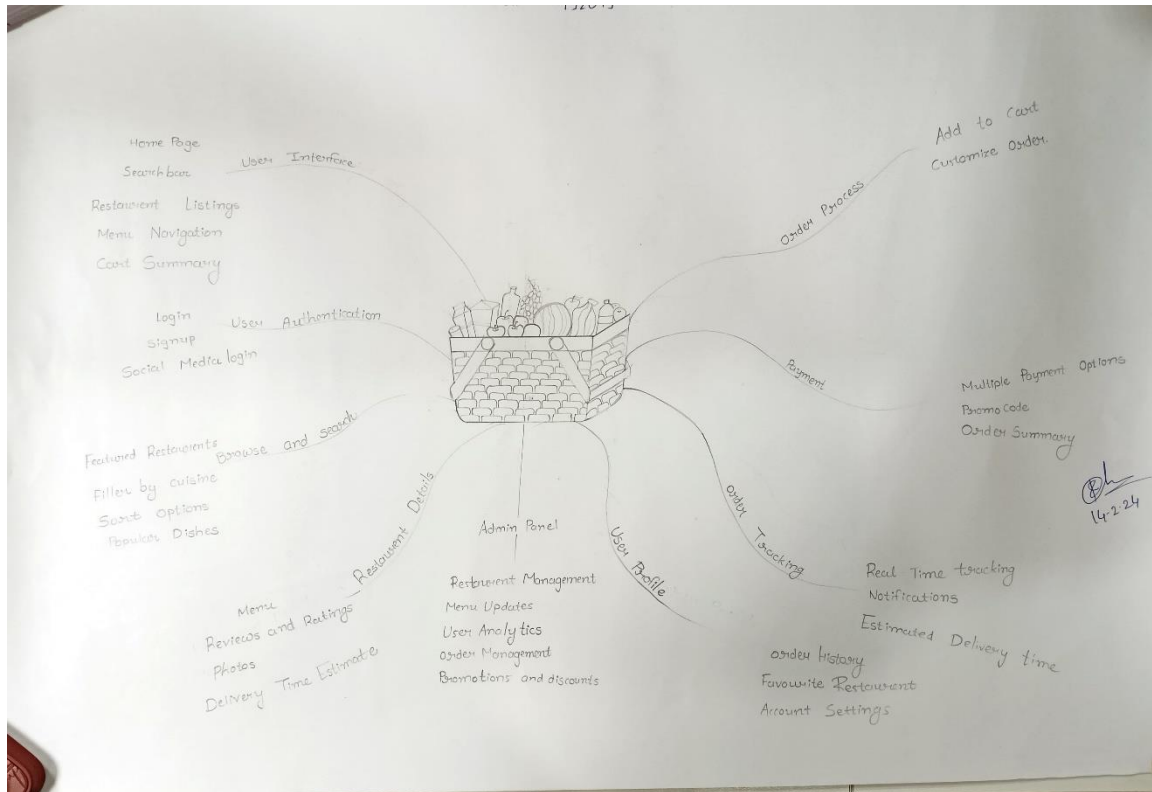 User Interface
Home Page
Searchbar
Restaurent Listings
Menu Navigation
Cart Summary
User Authentication
Login
Signup
Social Media login
Browse and search
Featured Restaurents
Filler by cuisine
Sort Options
Popular Dishes
Restaurent Details
Menu
Reviews and Ratings
Photos
Delivery Time Estimate
Admin Panel
Restaurent Management
Menu Updates
User Analytics
Order Management
Promotions and discounts
User Profile
Order History
Favourite Restaurent
Account Settings
Order Tracking
Real Time tracking
Notifications
Estimated Delivery time
Payment
Multiple Payment Options
Promo Code
Order Summary
Order Process
Add to Cart
Customize Order.
14-2-24